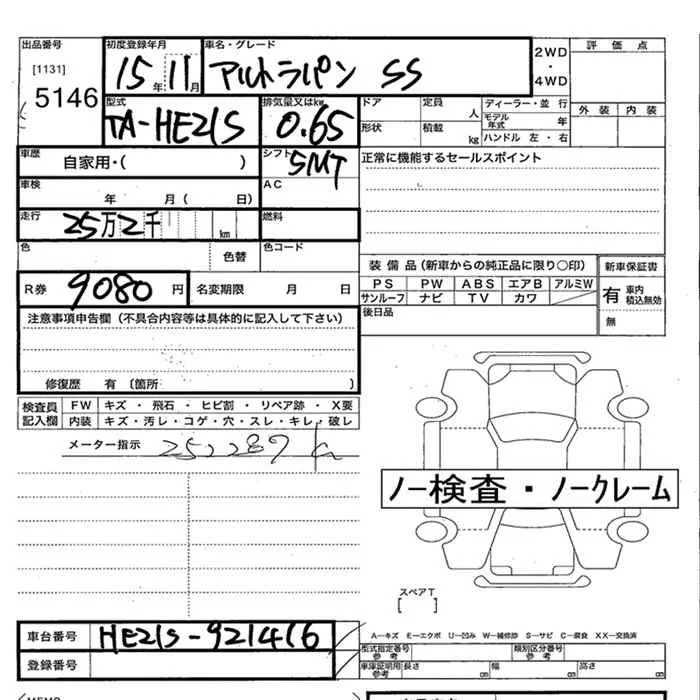 出品番号 初度登録年月 車名・グレード 2WD・4WD 評価点
[1131] 5146 15年11月 アルトラパン SS
型式 排気量又はkw ドア 定員 人 ディーラー・並行 外装 内装
TA-HE21S 0.65 形状 積載 kg モデル年式 年 ハンドル 左・右
車歴 自家用・( ) シフト 5MT 正常に機能するセールスポイント
車検 年 月( 日) AC
走行 25万2千 km 燃料
色 色替 色コード
装備品(新車からの純正品に限り〇印) 新車保証書
R券 9080円 名変期限 月 日 PS PW ABS エアB アルミW 有 車内積込無効
サンルーフ ナビ TV カワ
注意事項申告欄(不具合内容等は具体的に記入して下さい) 後日品 無
修復歴 有〔箇所 )
検査員記入欄 FW キズ・飛石・ヒビ割・リペア跡・X要
内装 キズ・汚レ・コゲ・穴・スレ・キレ・破レ
メーター指示 252287 km
ノー検査・ノークレーム
スペアT
[ ]
車台番号 HE21S-921416 A-キズ E-エクボ U-凹み W-補修跡 S-サビ C-腐食 XX-交換済
型式指定番号 参考 類別区分番号 参考
登録番号 車庫証明用 参考 長さ 幅 高さ